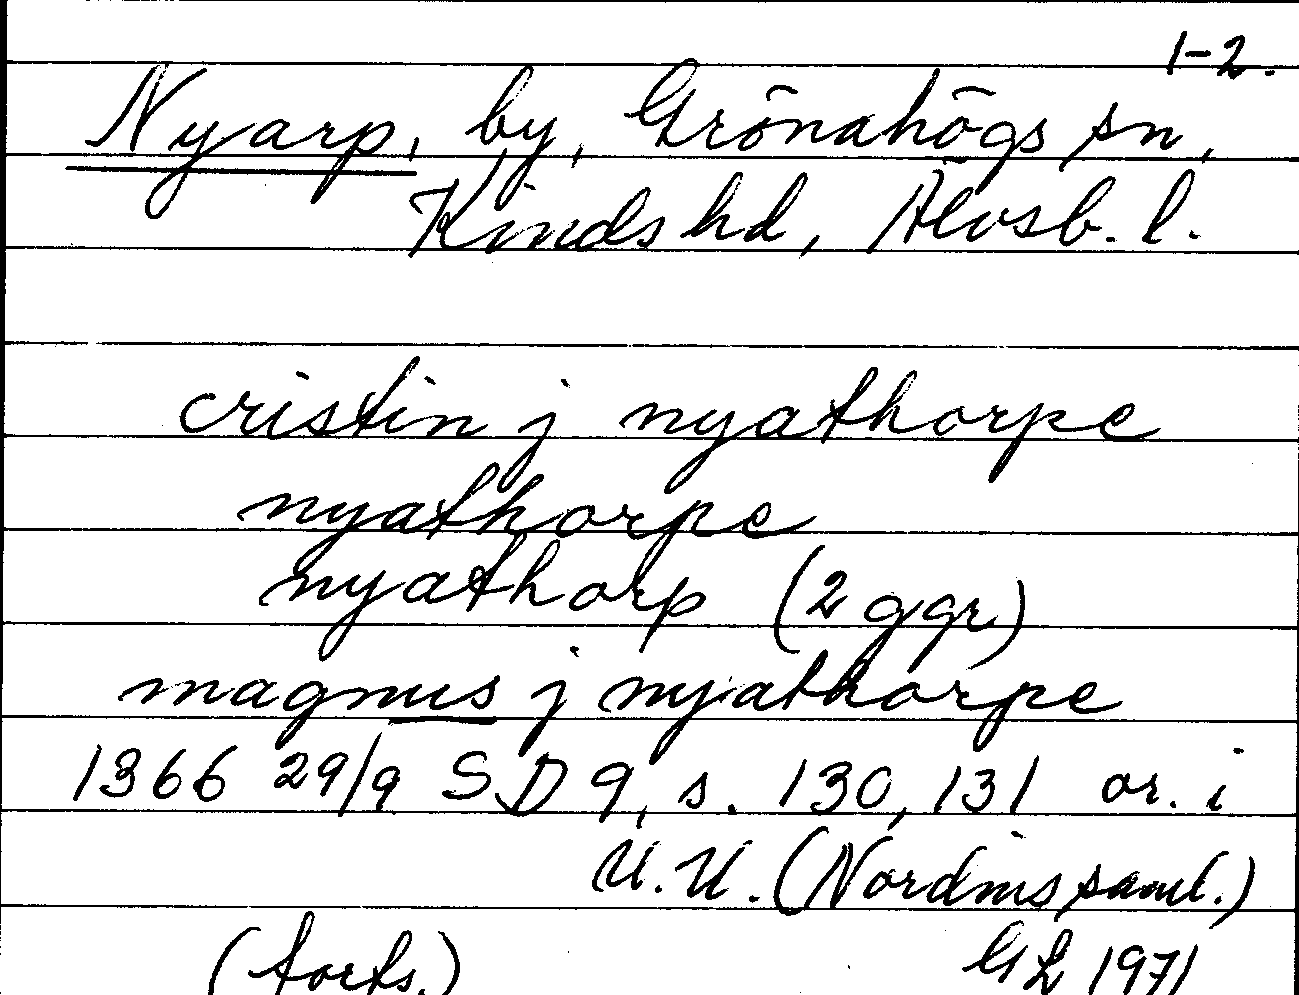 1-2.
Nyarp, by, Grönahögs sn,
Kinds hd, Älvsb. l.
cristin j nyathorpe
nyathorpe
nyathorp (2 ggr)
magnus j nyathorpe
1366 29/9 SD 9, s. 130, 131 or. i
U.U. (Nordins saml.)
(forts.) GL 1971